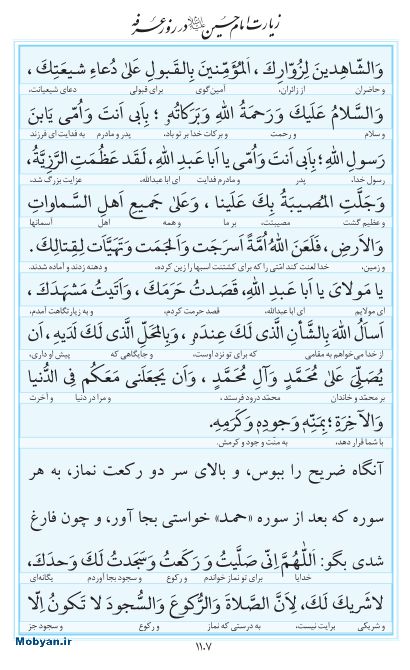 زیارت امام حسین علیه‌السلام در روز عرفه
وَالشّاهِدينَ لِزُوّارِكَ ، اَلْمُؤَمِّنينَ بِالْقَبولِ عَلىٰ دُعاءِ شيعَتِكَ ،
و حاضران از زائران، آمین‌گوی برای قبولی دعای شیعیانت،
وَالسَّلامُ عَلَيكَ وَرَحمَةُ اللهِ وَبَرَكاتُهُ ؛ بِاَبى اَنتَ وَاُمّى يَابنَ
و سلام و رحمت و برکات خدا بر تو باد، پدر و مادرم به فدایت ای فرزند
رَسولِ اللهِ؛ بِاَبى اَنتَ وَاُمّى يا اَبا عَبدِ اللهِ ، لَقَد عَظُمَتِ الرَّزِيَّةُ،
رسول خدا، پدر و مادرم فدایت ای ابا عبدالله، عزایت بزرگ شد.
وَجَلَّتِ المُصيبَةُ بِكَ عَلَينا ، وَعَلىٰ جَميعِ اَهلِ السَّماواتِ
و عظیم گشت مصیبتت، بر ما و همه اهل آسمانها
وَالاَرضِ ، فَلَعَنَ اللهُ اُمَّةً اَسرَجَت وَاَلجَمَت وَتَهَيَّاَت لِقِتالِكَ.
و زمین، خدا لعنت کند امّتی را که برای کشتنت اسبها را زین کرده، و دهنه زدند و آماده شدند.
يا مَولاىَ يا اَبا عَبدِ اللهِ، قَصَدتُ حَرَمَكَ ، وَاَتَيتُ مَشهَدَكَ ،
ای مولایم ای ابا عبدالله، قصد حرمت کردم، و به زیارتگاهت آمدم،
اَساَلُ اللهَ بِالشَّأنِ الَّذى لَكَ عِندَهُ ، وَبِالمَحَلِّ الَّذى لَكَ لَدَيهِ، اَن
از خدا می‌خواهم به مقامی که برای تو نزد اوست، و جایگاهی که پیش او داری،
يُصَلِّىَ عَلىٰ مُحَمَّدٍ وَآلِ مُحَمَّدٍ ، وَاَن يَجعَلَنى مَعَكُم فِى الدُّنيا
بر محمّد و خاندان محمّد درود فرستد، و مرا در دنیا و آخرت
وَالآخِرَةِ؛بِمَنِّهِ وَجودِهِ وَكَرَمِهِ.
با شما قرار دهد، به منت و جود و کرمش.
آنگاه ضریح را ببوس، و بالای سر دو رکعت نماز، به هر
سوره که بعد از سوره «حمد» خواستی بجا آور، و چون فارغ
شدی بگو: اَللّٰهُمَّ اِنّى صَلَّيتُ وَ رَكَعتُ وَسَجَدتُ لَكَ وَحدَكَ،
خدایا برای تو نماز خواندم و رکوع و سجود بجا آوردم یگانه‌ای
لاشَريكَ لَكَ، لِاَنَّ الصَّلاةَ وَالرُّكوعَ وَالسُّجودَ لا تَكونُ اِلّا
و شریکی برایت نیست، به درستی که نماز و رکوع و سجود جز
Mobyan.ir
۱۱۰۷